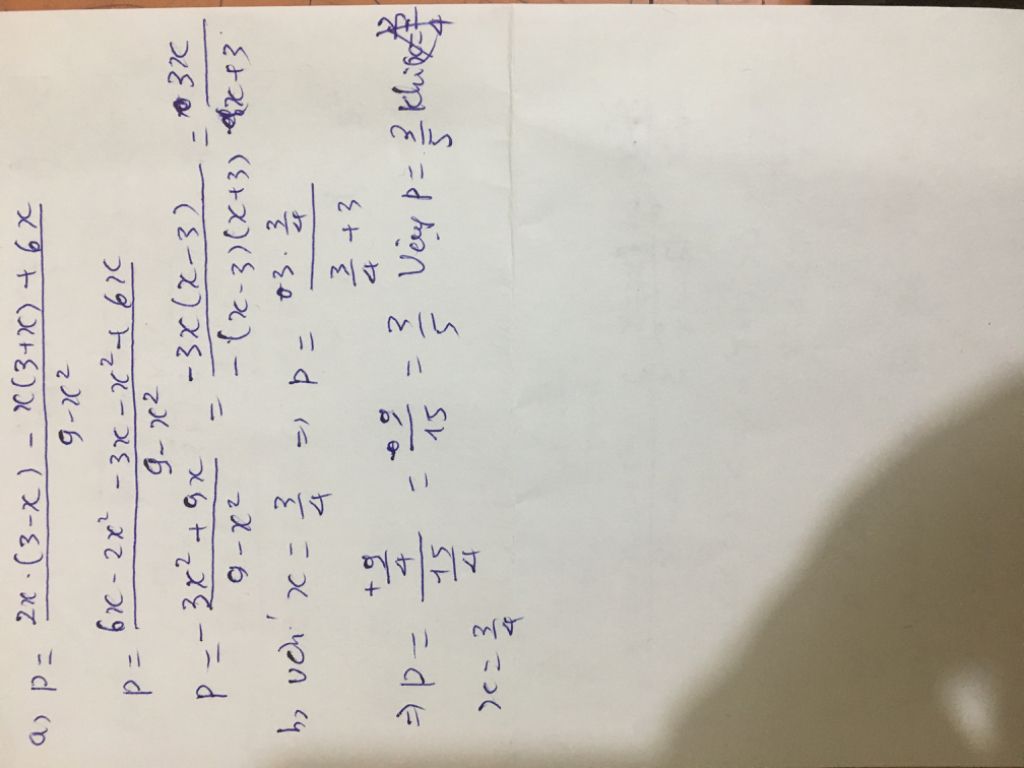 a) P = \frac{2x.(3-x) - x(3+x) + 6x}{9-x²}
P = \frac{6x - 2x² - 3x - x² + 6x}{9-x²}
P = \frac{-3x² + 9x}{9-x²} = \frac{-3x(x-3)}{-(x-3)(x+3)} = \frac{3x}{x+3}
b) với x = \frac{3}{4} => P = \frac{3.\frac{3}{4}}{\frac{3}{4}+3}
=> P = \frac{+\frac{9}{4}}{\frac{15}{4}} = \frac{9}{15} = \frac{3}{5} Vậy P = \frac{3}{5} khi
x = \frac{3}{4}